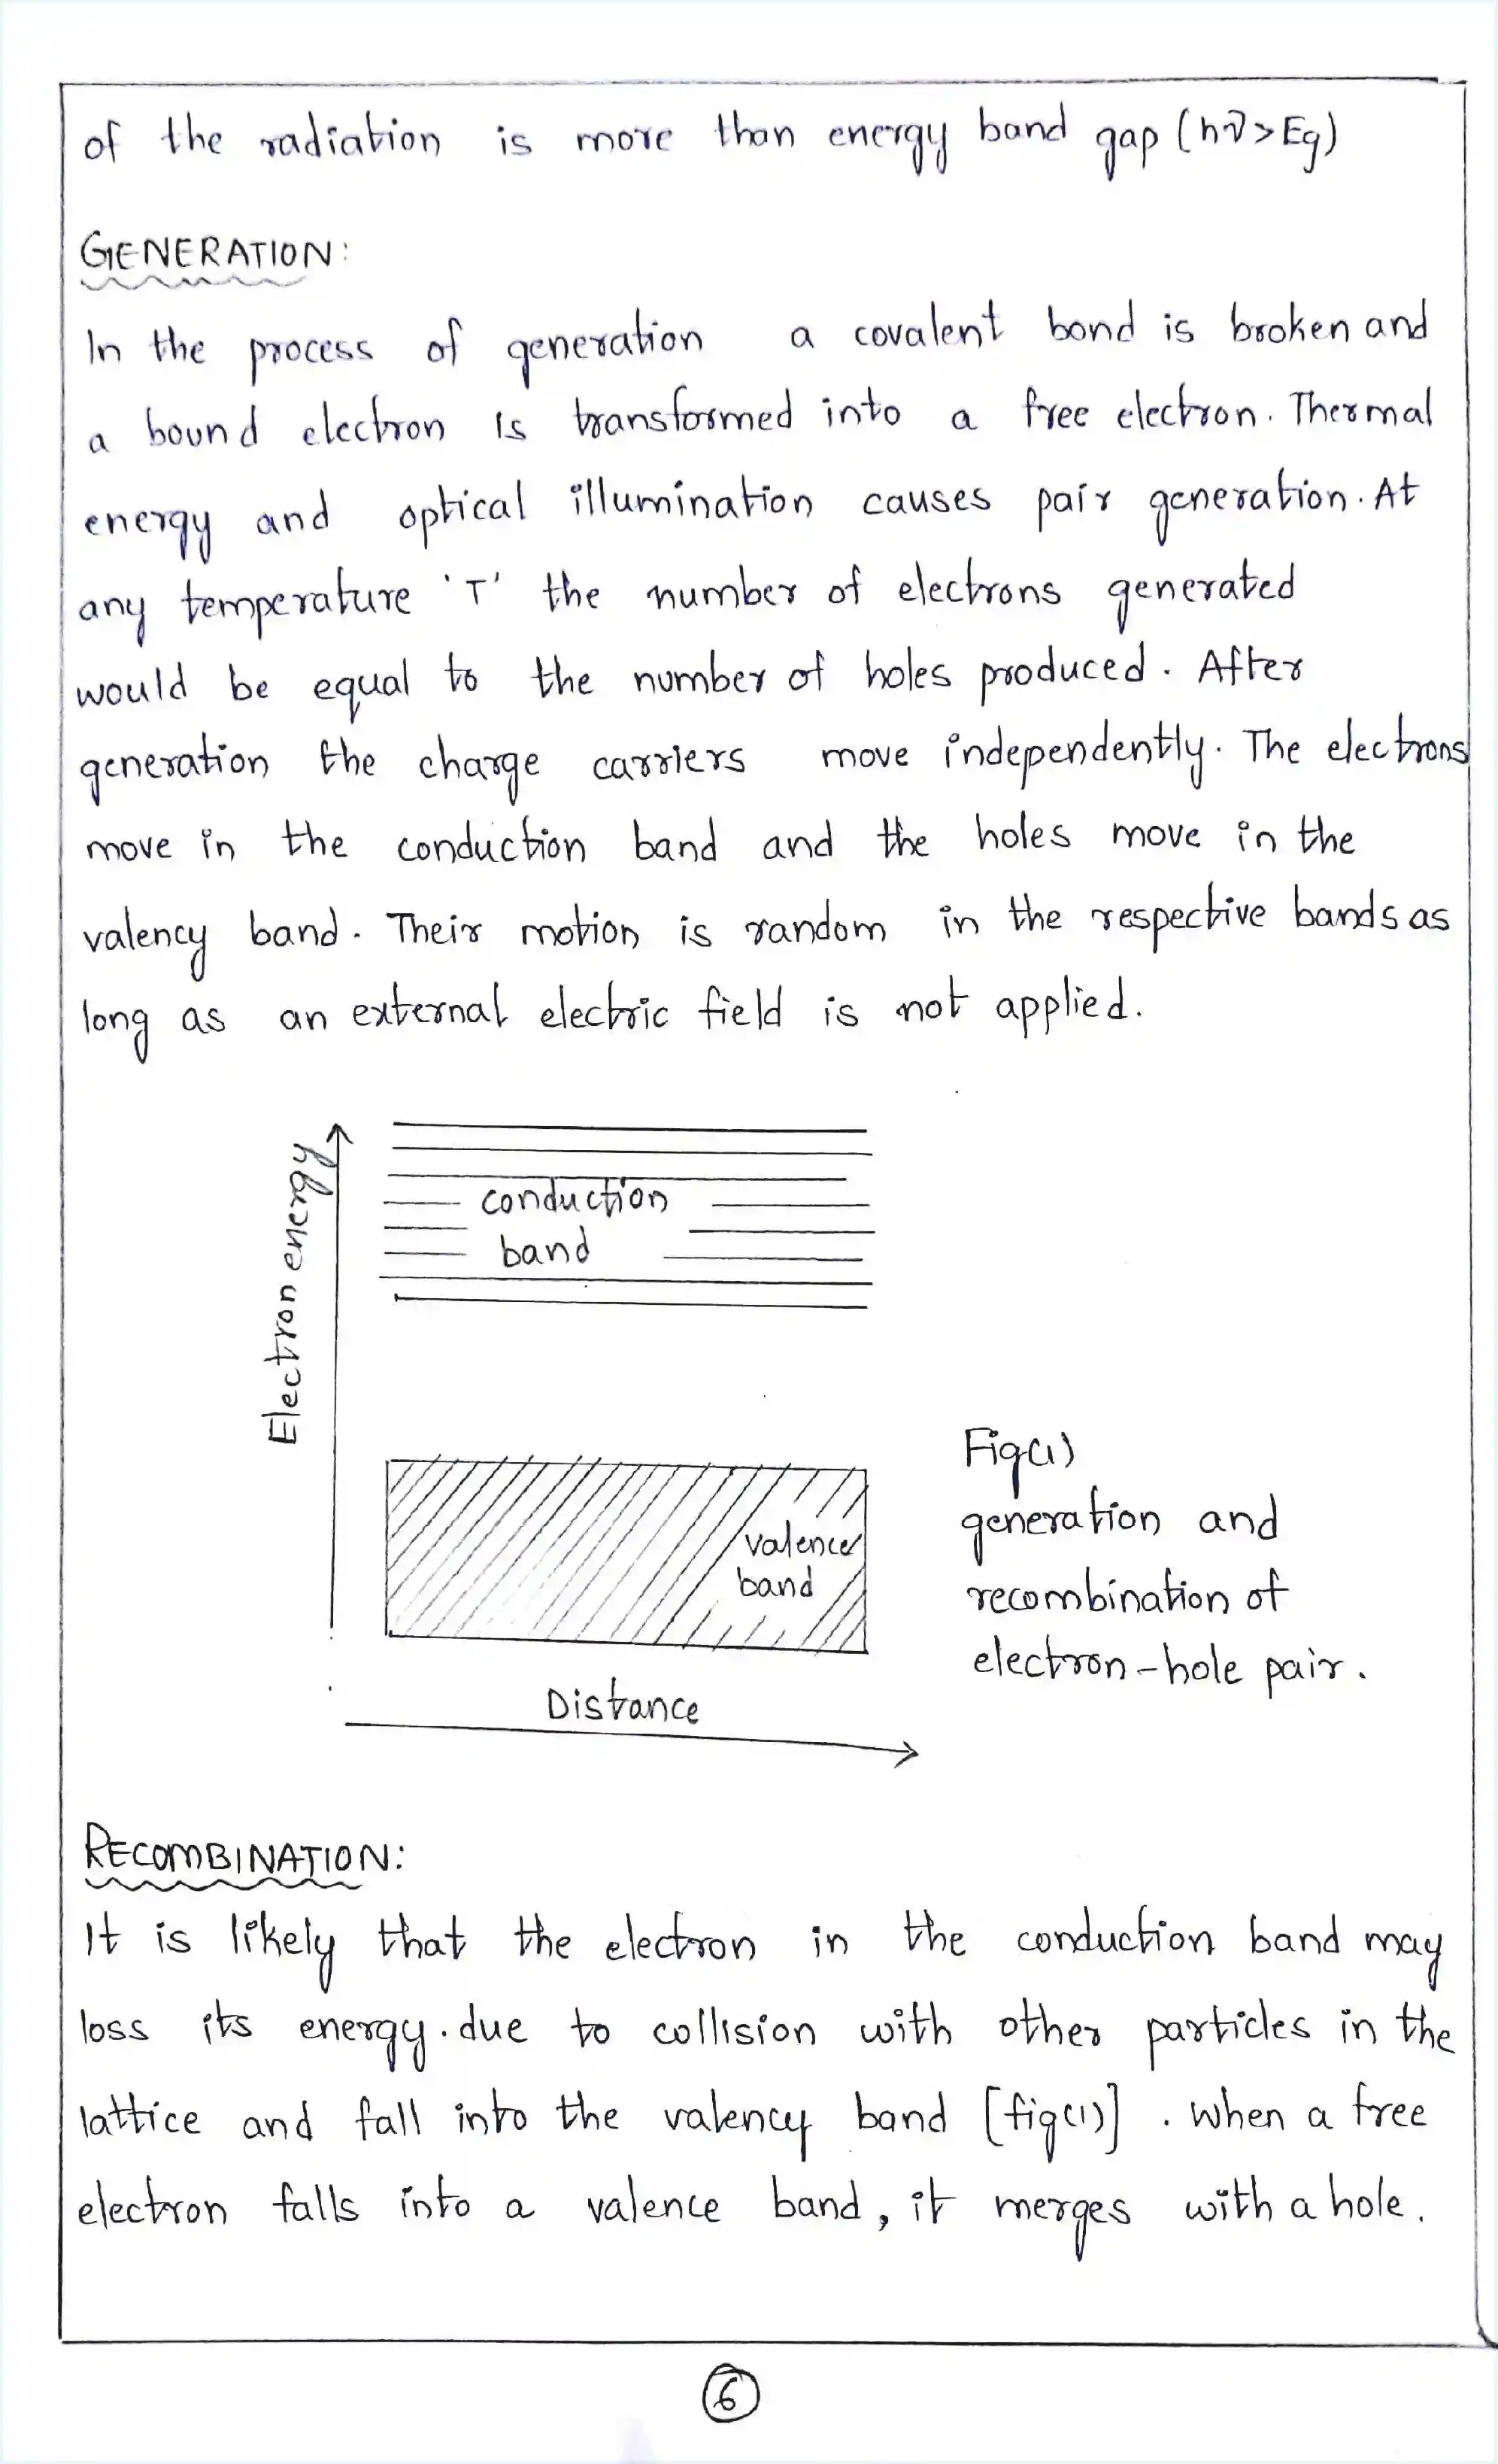 of the radiation is more than energy band gap (hν>Eg)
GENERATION:
In the process of generation a covalent bond is broken and
a bound electron is transformed into a free electron. Thermal
energy and optical illumination causes pair generation. At
any temperature 'T' the number of electrons generated
would be equal to the number of holes produced. After
generation the charge carriers move independently. The electrons
move in the conduction band and the holes move in the
valency band. Their motion is random in the respective bands as
long as an external electric field is not applied.
Electron energy
conduction
band
valence
band
Distance
Fig(1)
generation and
recombination of
electron-hole pair.
RECOMBINATION:
It is likely that the electron in the conduction band may
loss its energy. due to collision with other particles in the
lattice and fall into the valency band [fig(1)]. when a free
electron falls into a valence band, it merges with a hole.
6